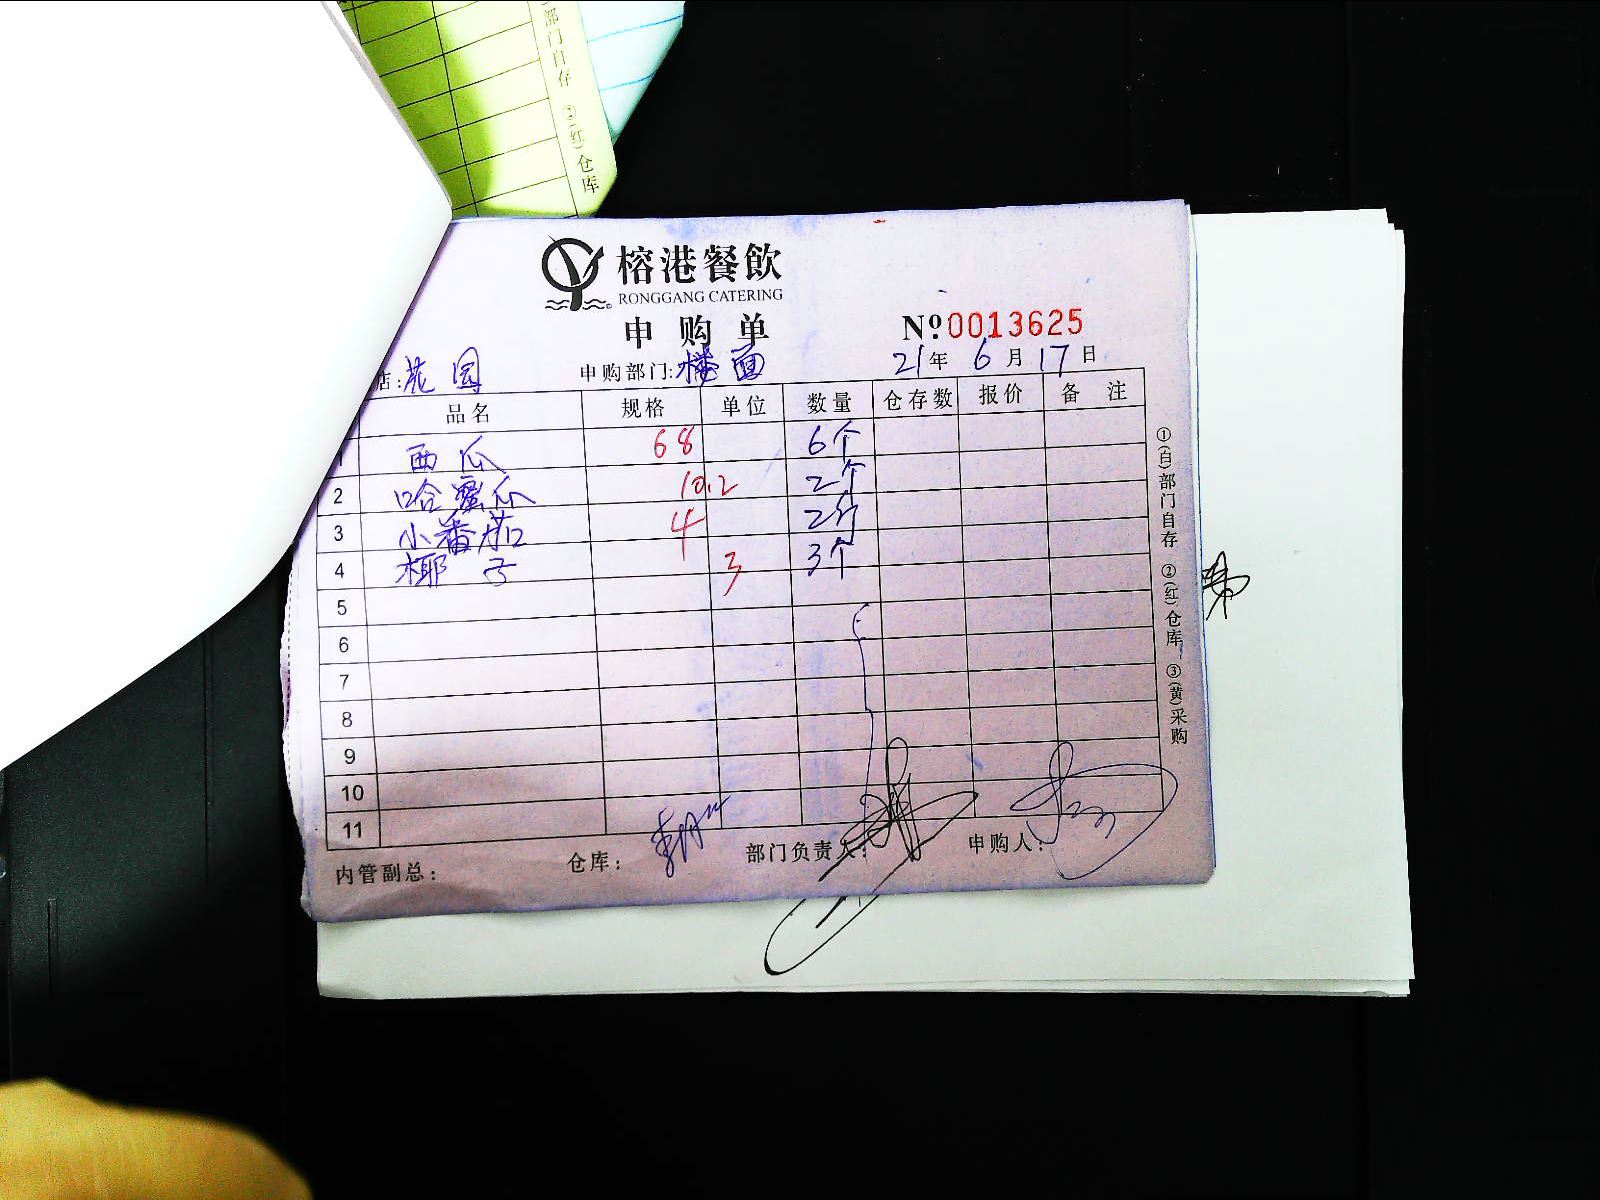 部门自存 ②(红)仓库
榕港餐飲
RONGGANG CATERING
申购单
№0013625
店:花园 申购部门:楼面 21年6月17日
品名 规格 单位 数量 仓存数 报价 备注
1 西瓜 68 6个
2 哈蜜瓜 10.2 2个
3 小番茄 4 2斤
4 椰子 3 3个
5
6
7
8
9
10
11
内管副总: 仓库: 部门负责人: 申购人:
①(白)部门自存 ②(红)仓库 ③(黄)采购